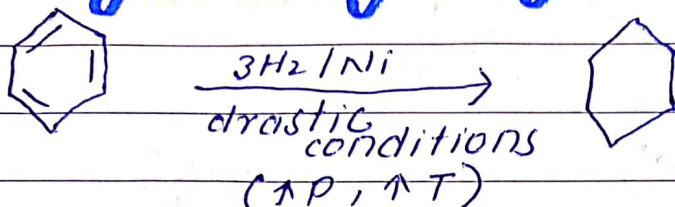 3H2/Ni
drastic
conditions
(↑P, ↑T)